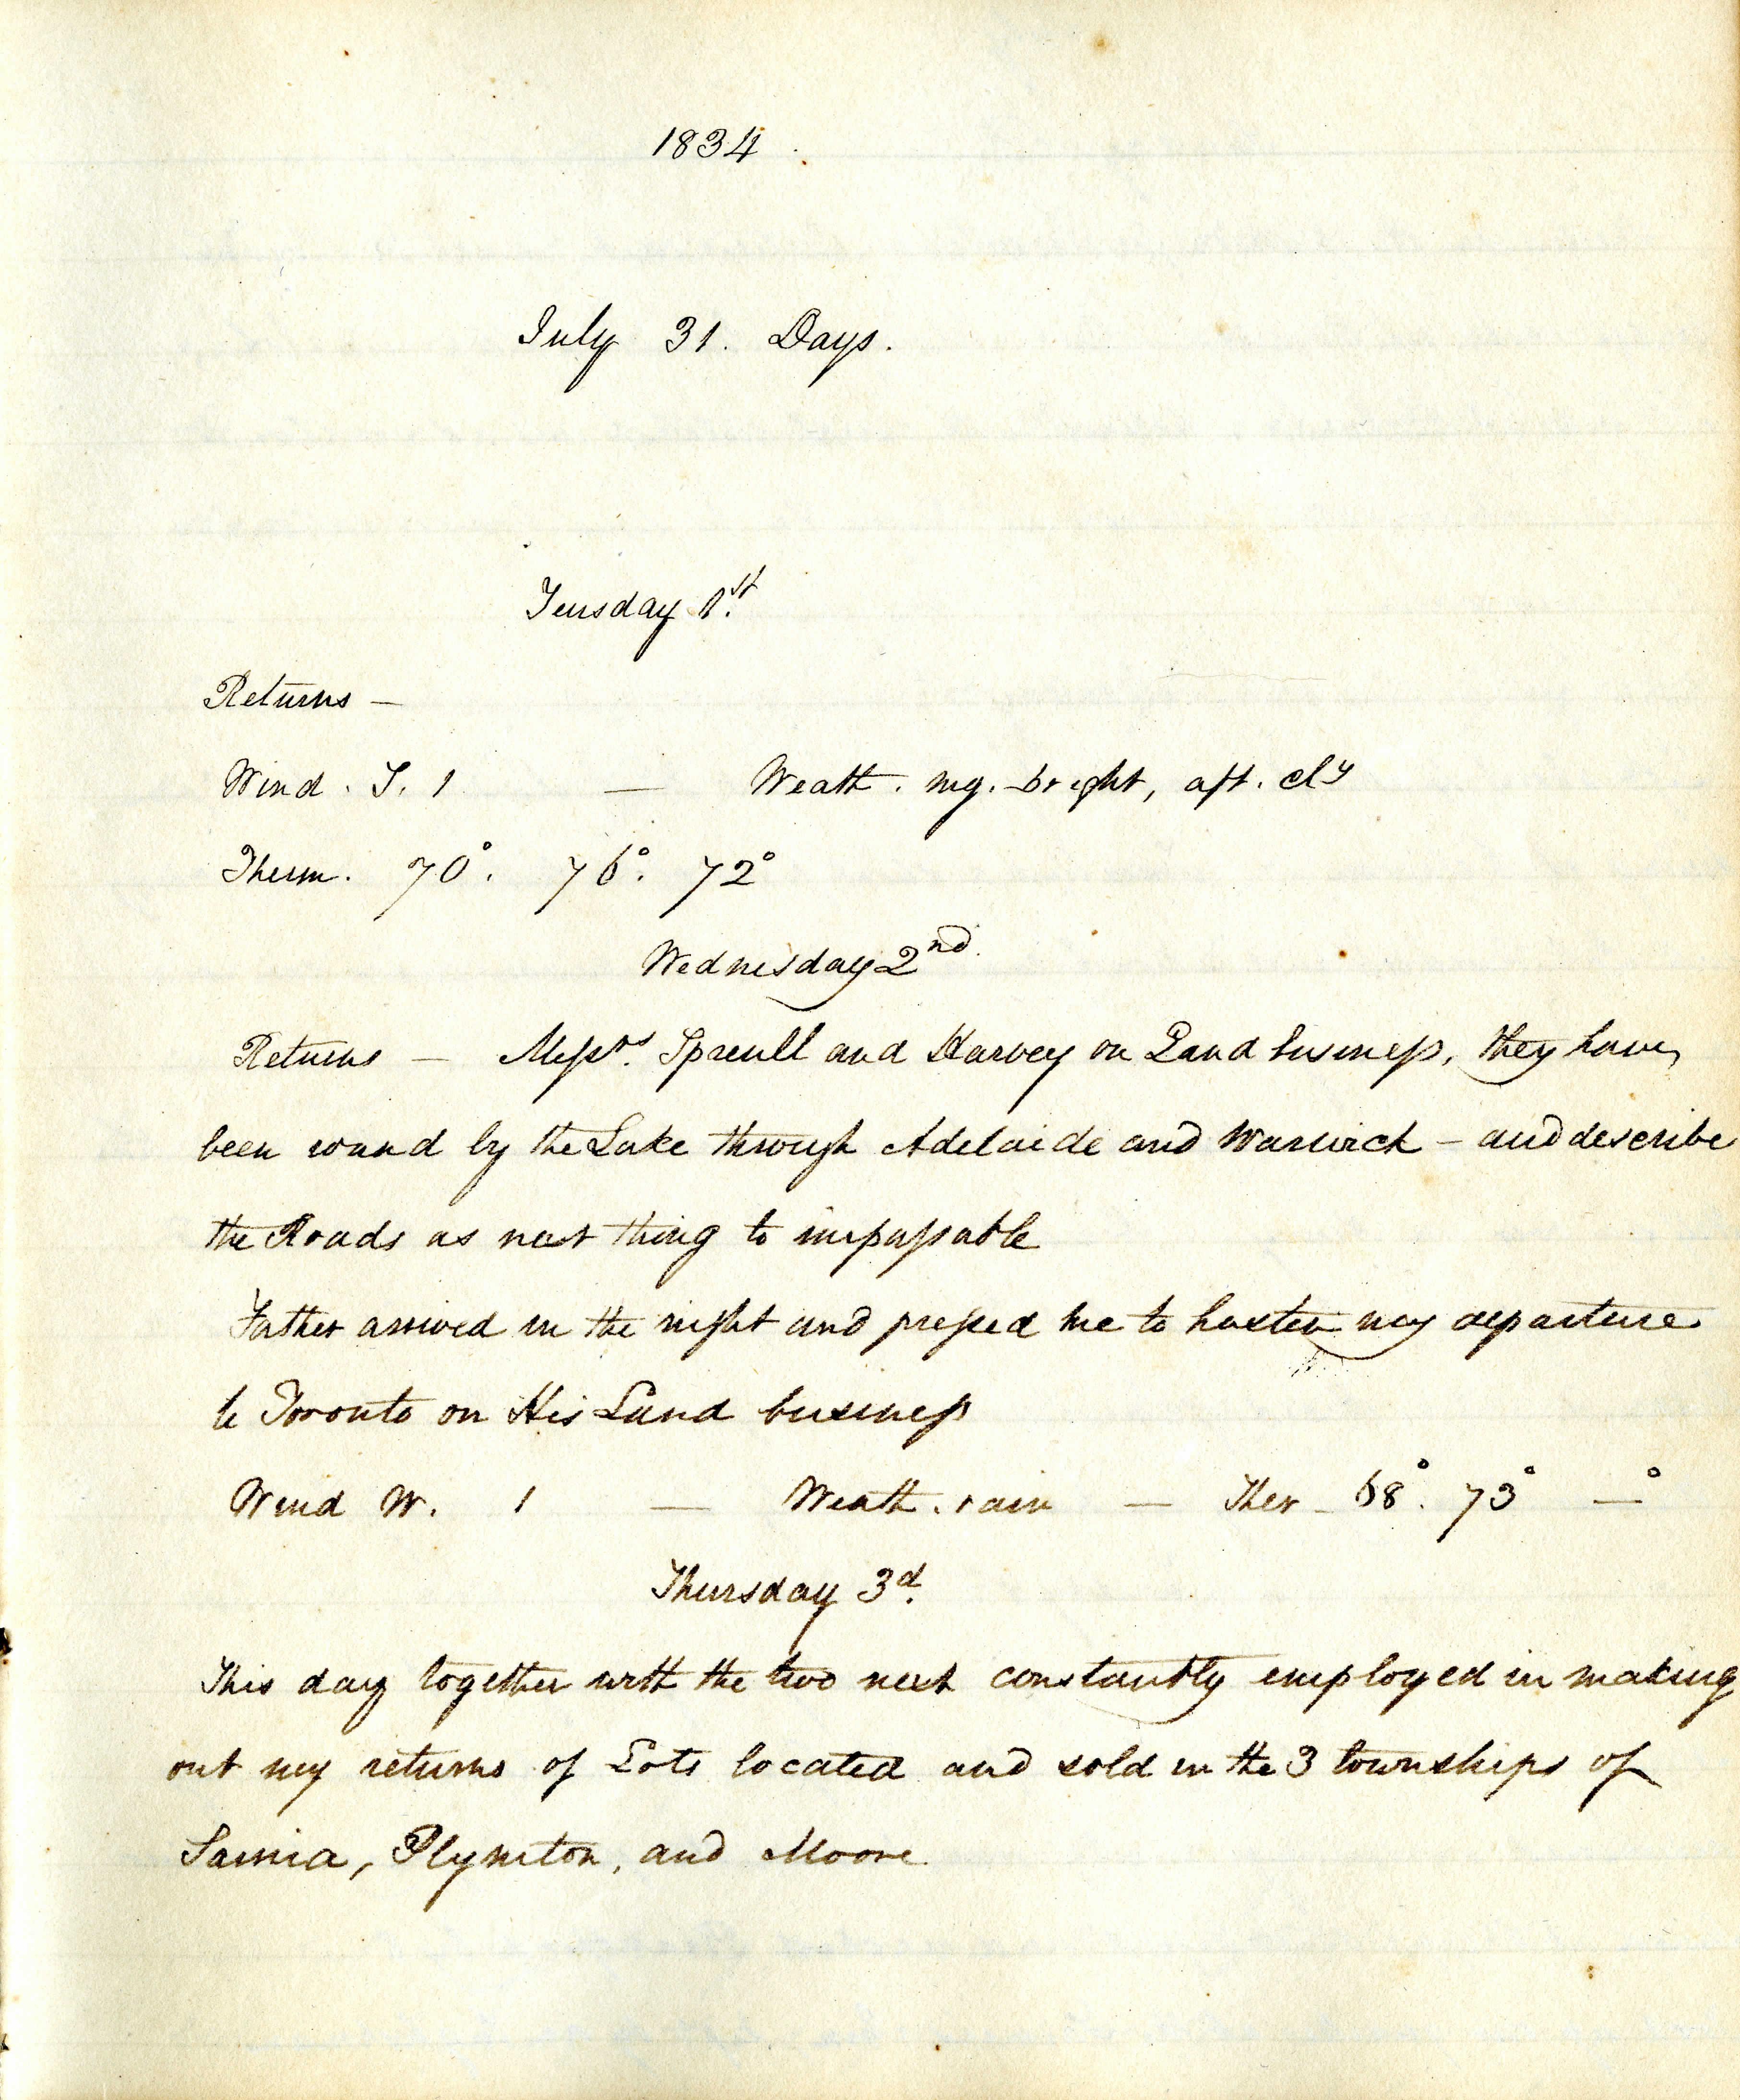 1834
July 31. Days.
Teusday 1st.
Returns —
Wind. S. 1 — Weath. mg. bright, aft. cly
Therm. 70°. 76°. 72°
Wednesday 2nd.
Returns — Messrs. Spreull and Harvey on Land business, they have
been round by the Lake through Adelaide and Warwick — and describe
the Roads as next thing to impassable
Father arrived in the night and pressed me to hasten my departure
to Toronto on His Land business
Wind W. 1 — Weath. rain — Ther — 68°. 73° —°
Thursday 3d.
This day together with the two next constantly employed in making
out my returns of Lots located and sold in the 3 townships of
Sarnia, Plymton, and Moore